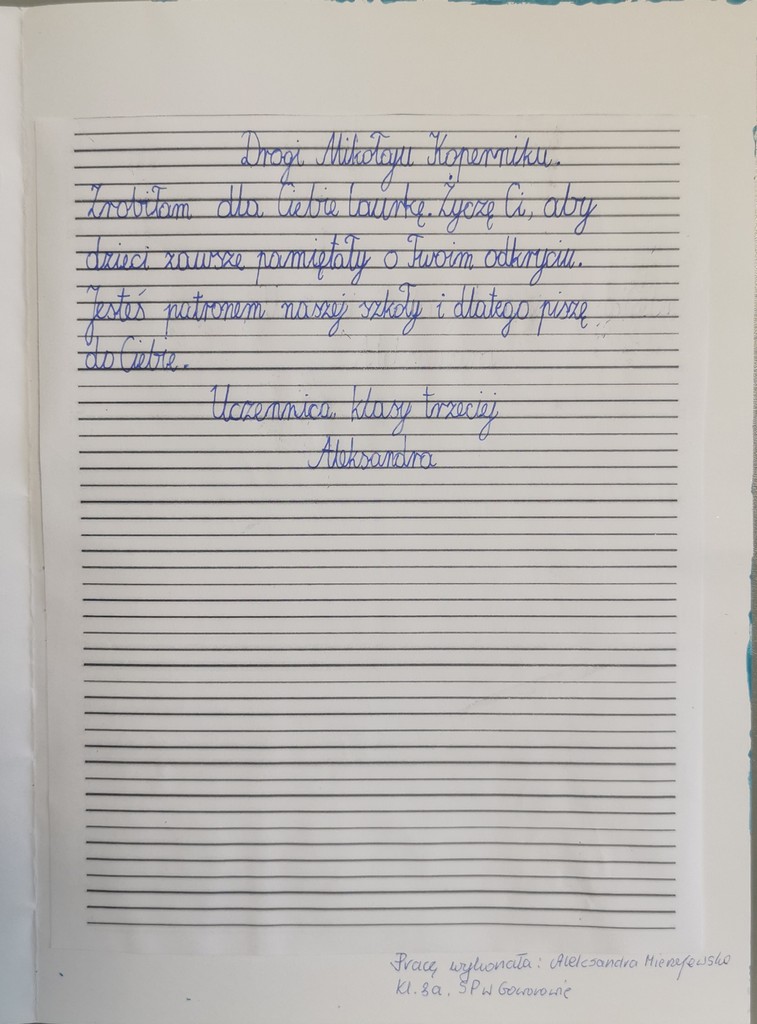 Drogi Mikołaju Koperniku.
Zrobiłam dla Ciebie laurkę. Życzę Ci, aby
dzieci zawsze pamiętały o Twoim odkryciu.
Jesteś patronem naszej szkoły i dlatego piszę
do Ciebie.
Uczennica klasy trzeciej
Aleksandra
Pracę wykonała: Aleksandra Mierzejewska
Kl. 3a. SP w Goworowie